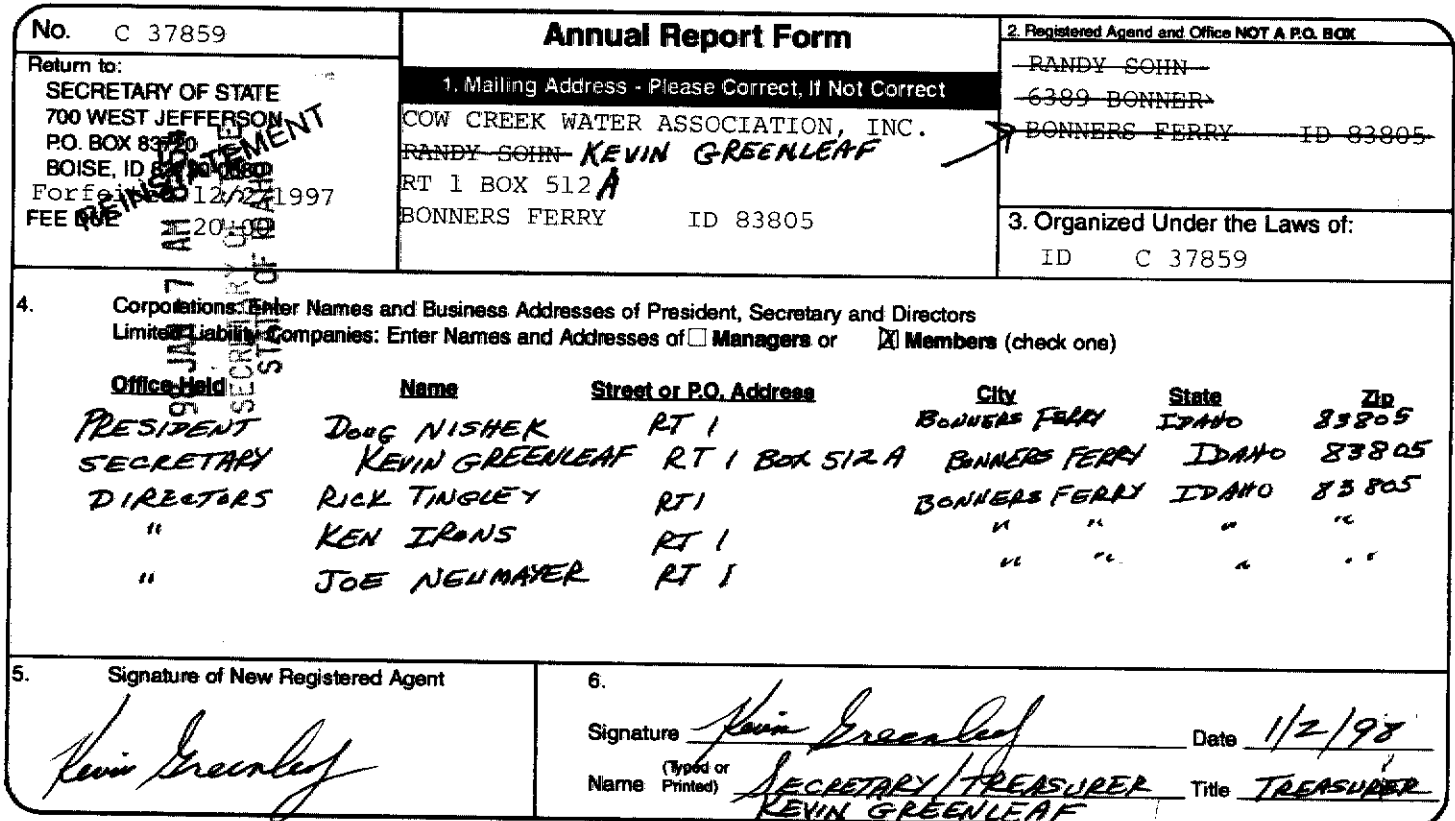 No. C 37859
Return to:
SECRETARY OF STATE
700 WEST JEFFERSON
P.O. BOX 83720
BOISE, ID
REINSTATEMENT
Forfeited 12/2/1997
FEE DUE 20.00
98 JAN 7 AM
SECRETARY OF STATE
STATE OF IDAHO
Annual Report Form
1. Mailing Address - Please Correct, If Not Correct
COW CREEK WATER ASSOCIATION, INC.
RANDY SOHN KEVIN GREENLEAF
RT 1 BOX 512 A
BONNERS FERRY ID 83805
2. Registered Agend and Office NOT A P.O. BOX
RANDY SOHN
6389 BONNER
BONNERS FERRY ID 83805
3. Organized Under the Laws of:
ID C 37859
4. Corporations: Enter Names and Business Addresses of President, Secretary and Directors
Limited Liability Companies: Enter Names and Addresses of ☐ Managers or ☒ Members (check one)
Office Held Name Street or P.O. Address City State Zip
PRESIDENT DOUG NISHEK RT 1 BONNERS FERRY IDAHO 83805
SECRETARY KEVIN GREENLEAF RT 1 BOX 512 A BONNERS FERRY IDAHO 83805
DIRECTORS RICK TINGLEY RT 1 BONNERS FERRY IDAHO 83805
" KEN IRONS RT 1 " " " "
" JOE NEUMAYER RT 1 " " " "
5. Signature of New Registered Agent
Kevin Greenleaf
6.
Signature Kevin Greenleaf Date 1/2/98
Name (Typed or Printed) SECRETARY/TREASURER Title TREASURER
KEVIN GREENLEAF